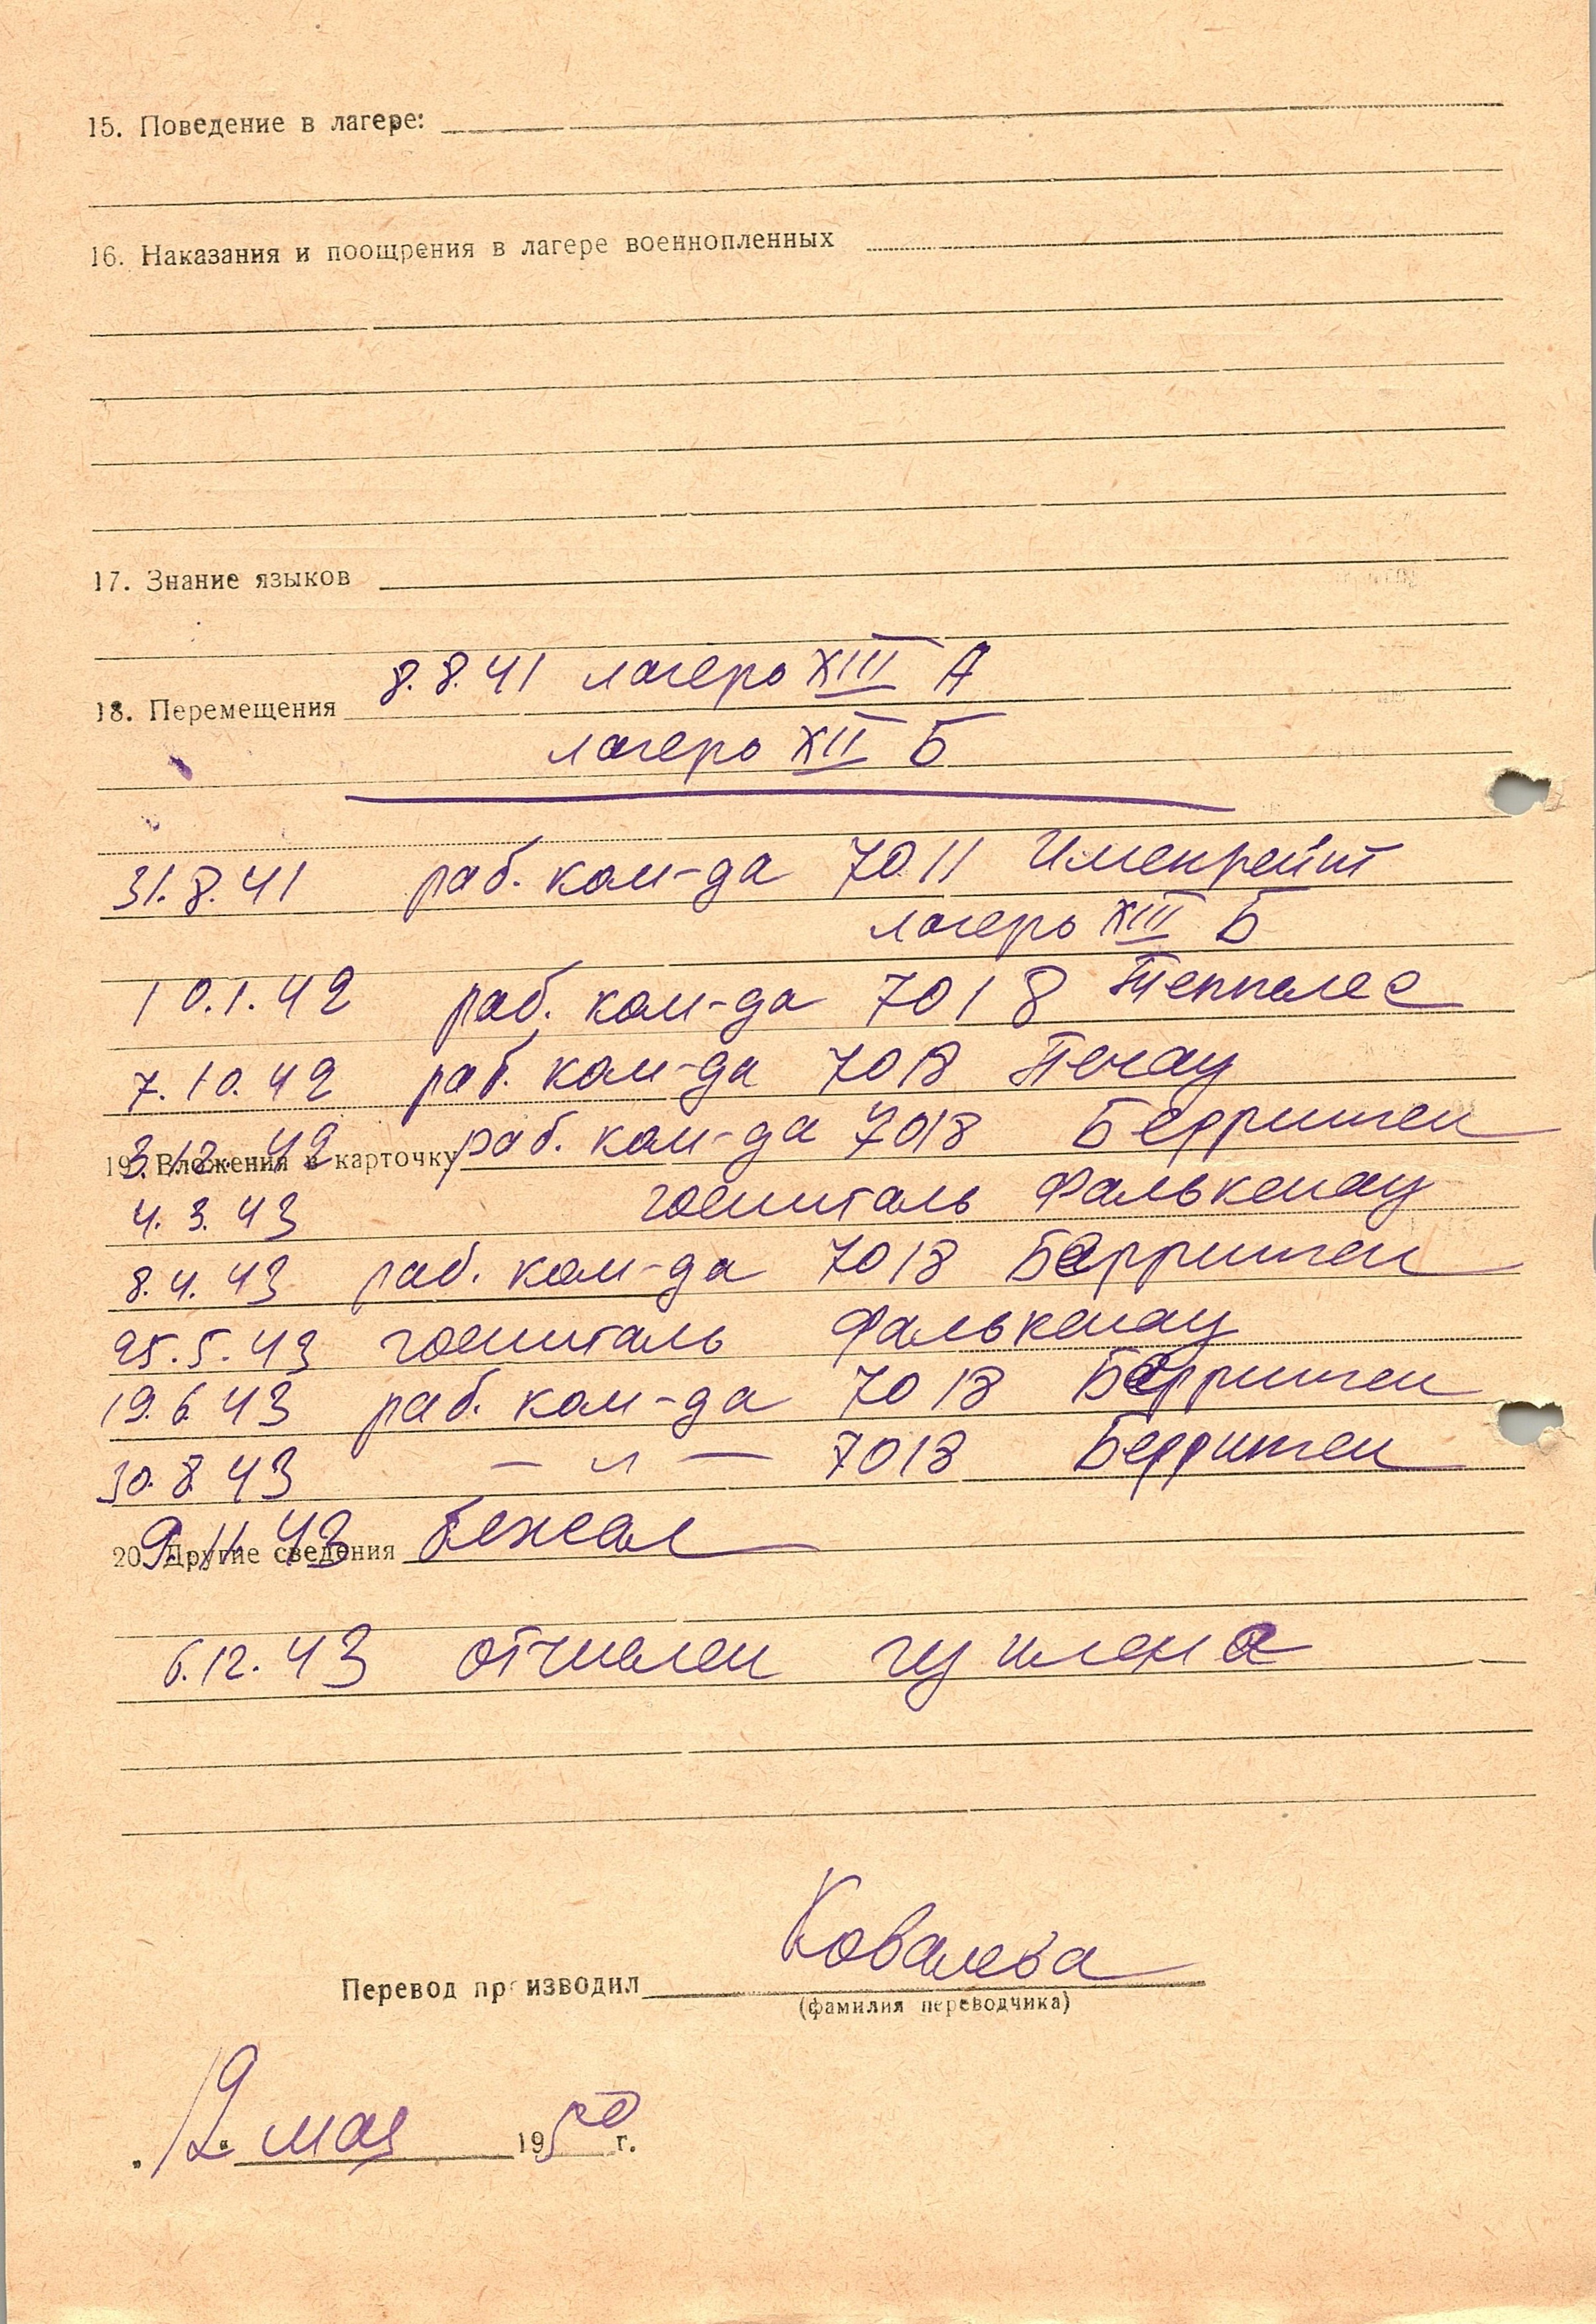 15. Поведение в лагере:
16. Наказания и поощрения в лагере военнопленных
17. Знание языков
8.8.41 лагерь XIII А
18. Перемещения
лагерь XII Б
31.8.41 раб. ком-да 7011 Именрейт
лагерь XIII Б
10.1.42 раб. ком-да 7018 Теппелес
7.10.42 раб. ком-да 7018 Печау
3.12.42 раб. ком-да 7018 Берринген
19. Вложения в карточку
4.3.43 госпиталь Фалькенау
8.4.43 раб. ком-да 7018 Берринген
25.5.43 госпиталь Фалькенау
19.6.43 раб. ком-да 7018 Берринген
30.8.43 — „ — 7018 Берринген
9.11.43 бежал
20. Другие сведения
6.12.43 отчислен из плена
Ковалева
Перевод производил
(фамилия переводчика)
"12" мая 1950 г.